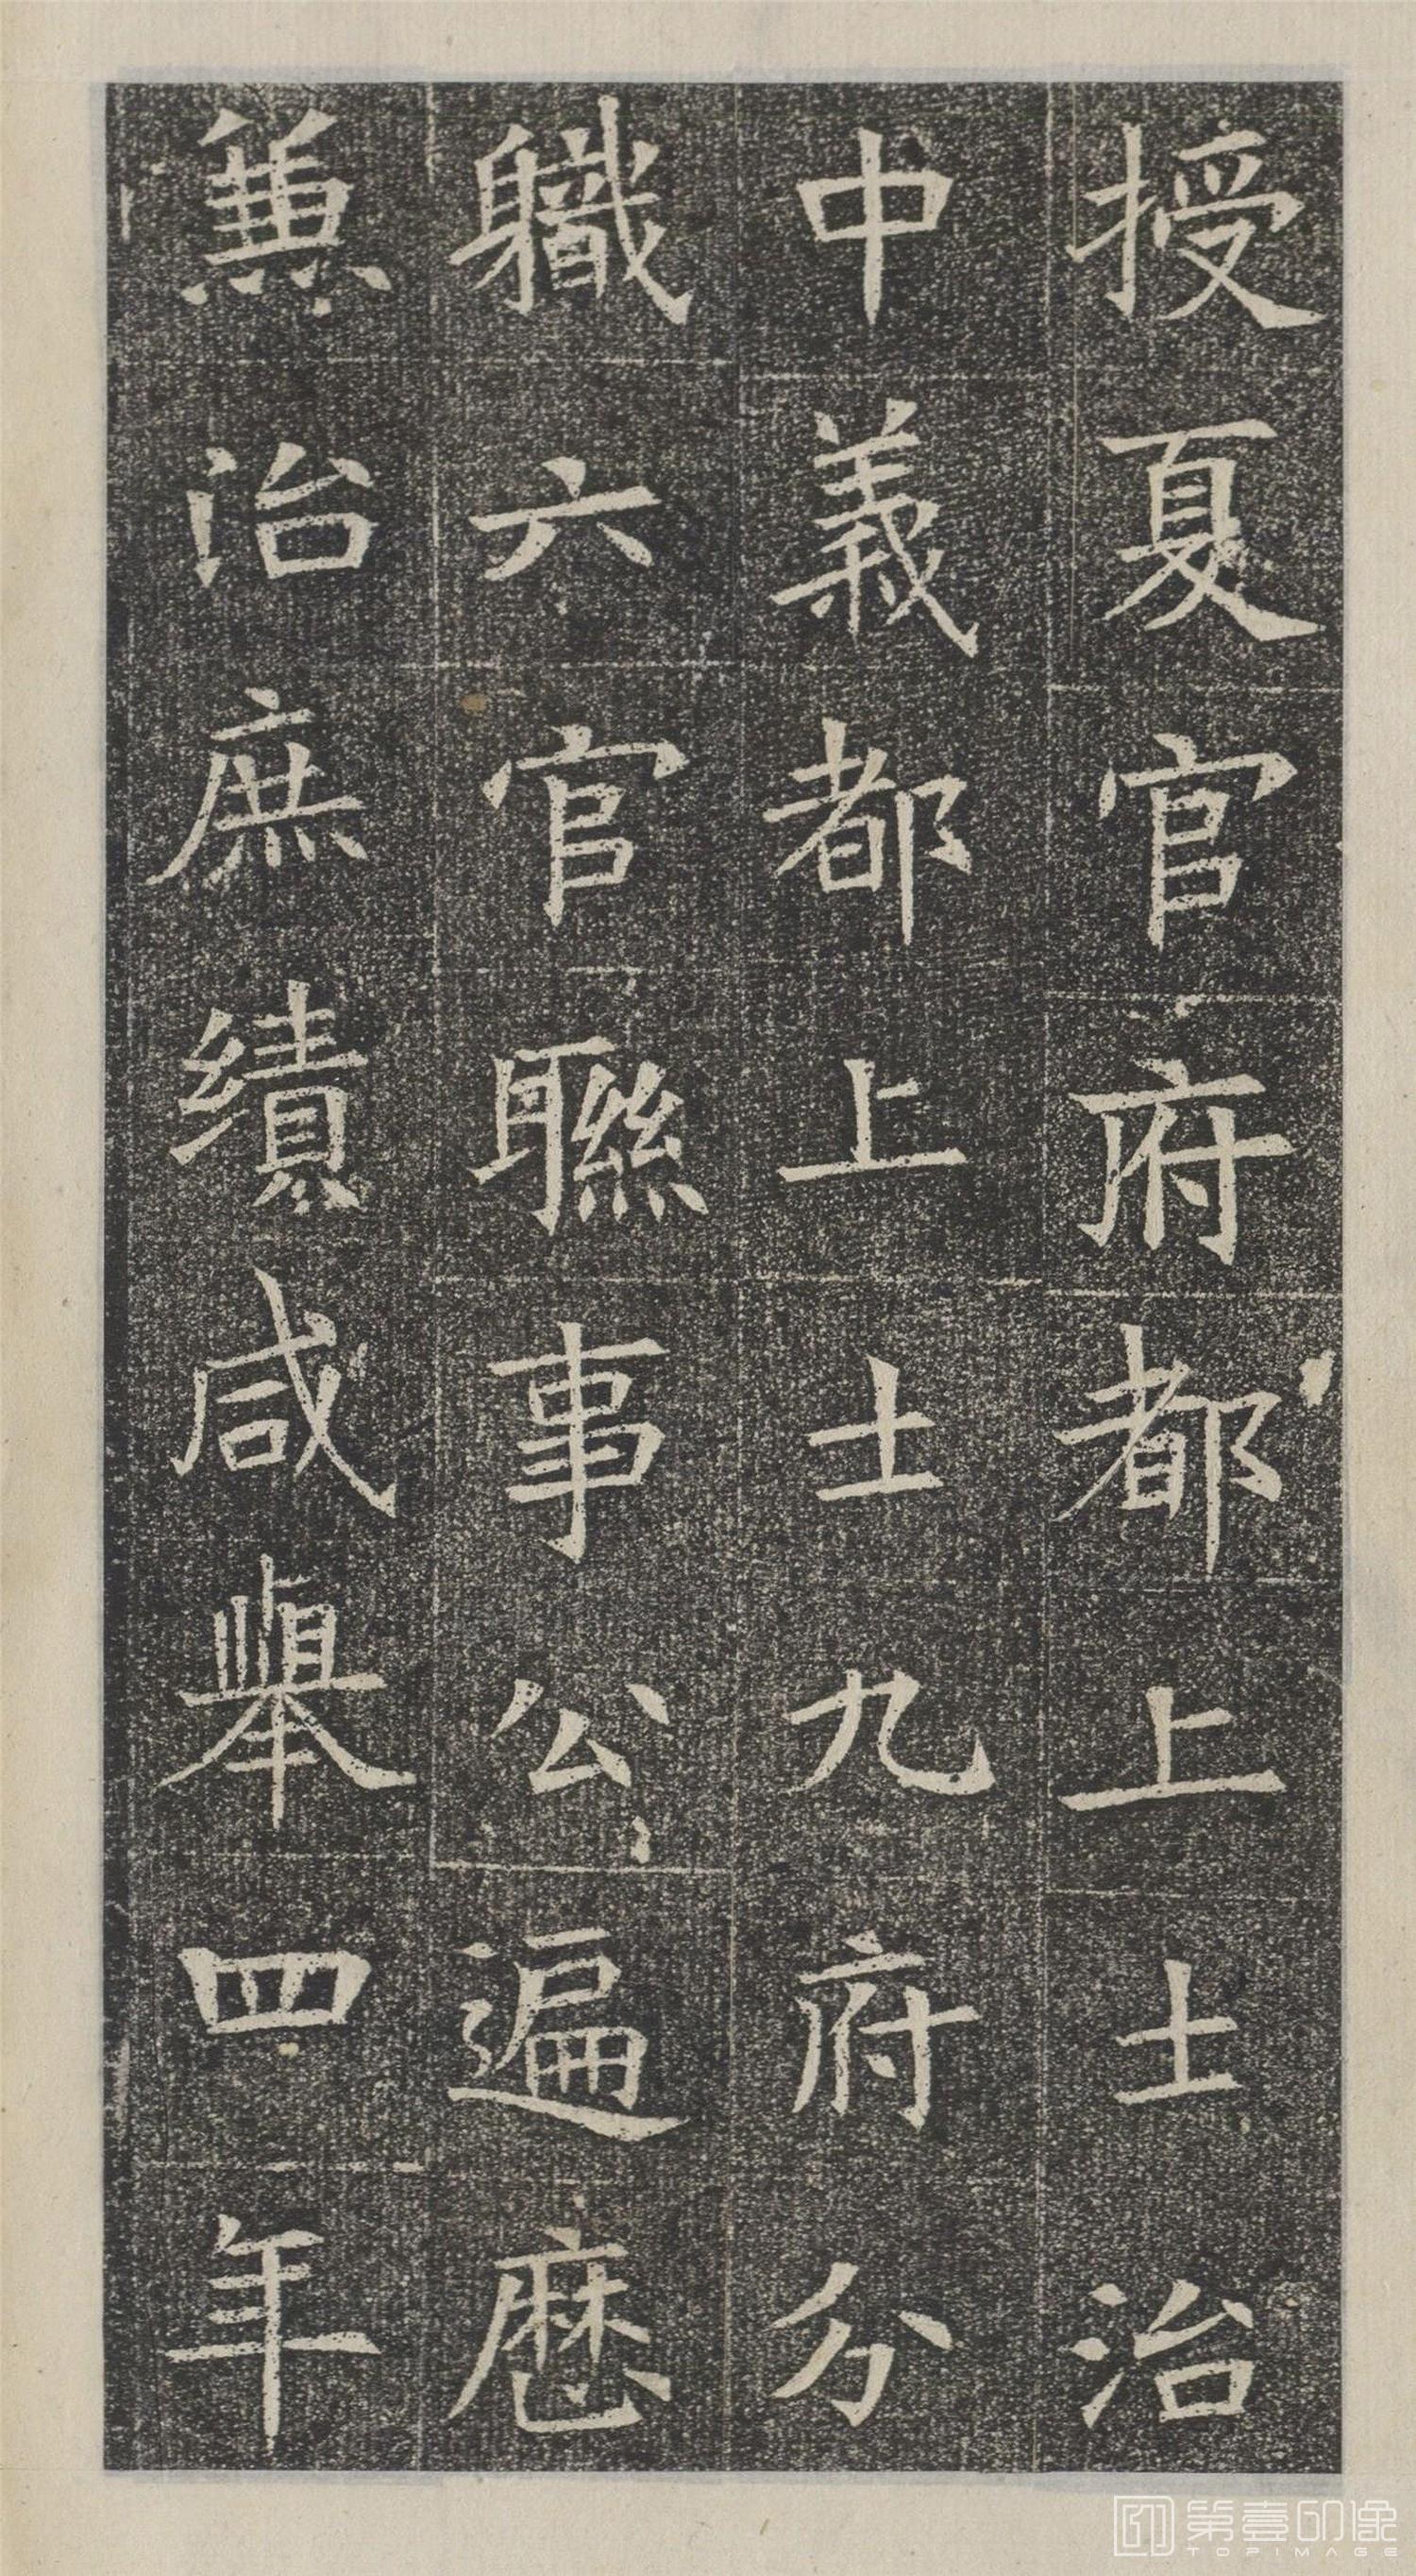 授夏官府都上士治
中義都上士九府分
軄六官聮事公遍歷
兼治庶績咸舉四年
第壹印像
TOPIMAGE